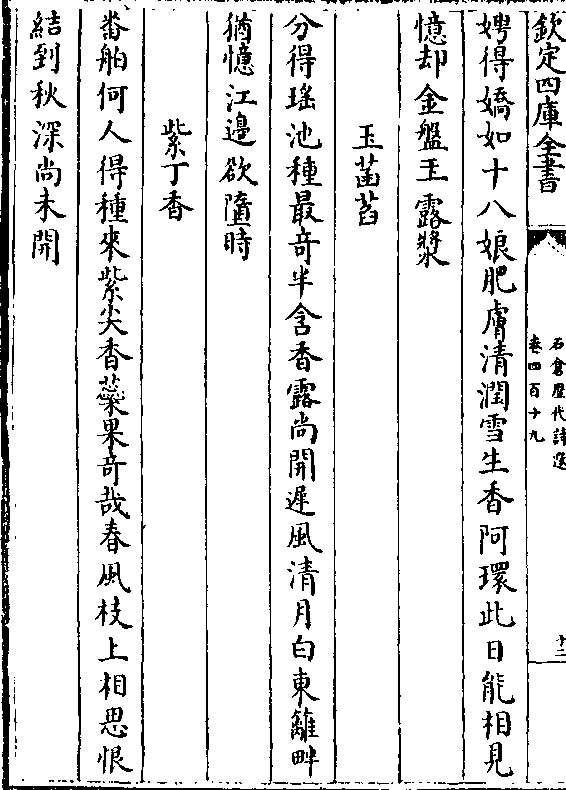 欽定四庫全書
石倉歴代詩選
卷四百十九
十二
娉得嬌如十八娘肥膚清潤雪生香阿環此日能相見
憶却金盤玉露漿
玉菡萏
分得瑶池種最竒半含香露尚開遲風清月白東籬畔
猶憶江邉欲墮時
紫丁香
畨舶何人得種來紫尖香蘂果竒哉春風枝上相思恨
結到秋深尚未開